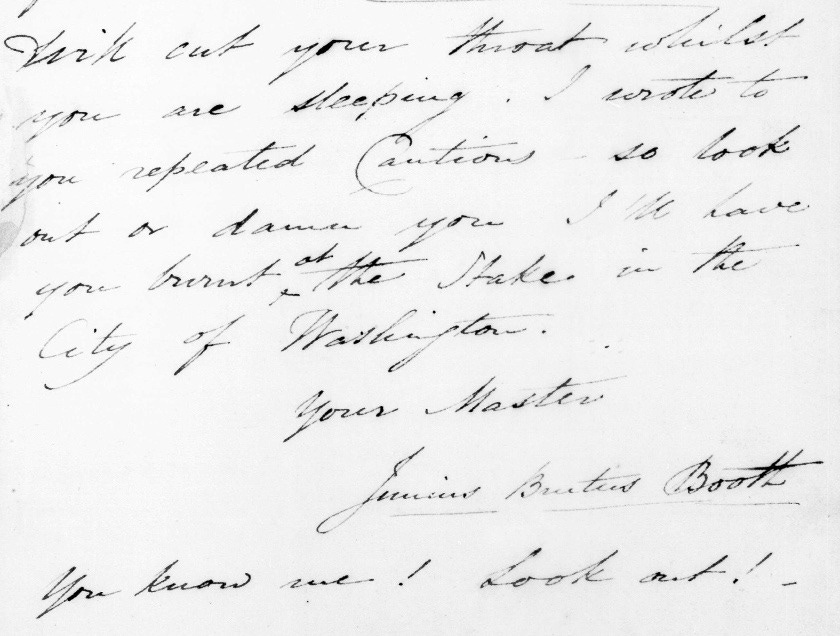 will cut your throat whilst
you are sleeping. I wrote to
you repeated Cautions so look
out or damn you I'll have
you burnt at the Stake in the
City of Washington.
Your Master
Junius Brutus Booth
You know me! Look out! -